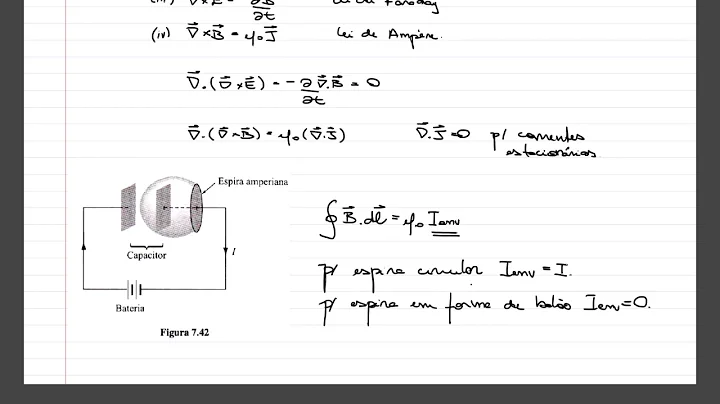 (iv) ∇⃗ × B⃗ = μ₀ J⃗ Lei de Ampère.
∇⃗ . (∇⃗ × E⃗) = - ∂/∂t ∇⃗ . B⃗ = 0
∇⃗ . (∇⃗ × B⃗) = μ₀ (∇⃗ . J⃗) ∇⃗ . J⃗ = 0 p/ correntes
estacionárias
Espira amperiana
Capacitor
I
Bateria
Figura 7.42
∮ B⃗ . dl⃗ = μ₀ Ienv
p/ espira circular Ienv = I.
p/ espira em forma de balão Ienv = 0.